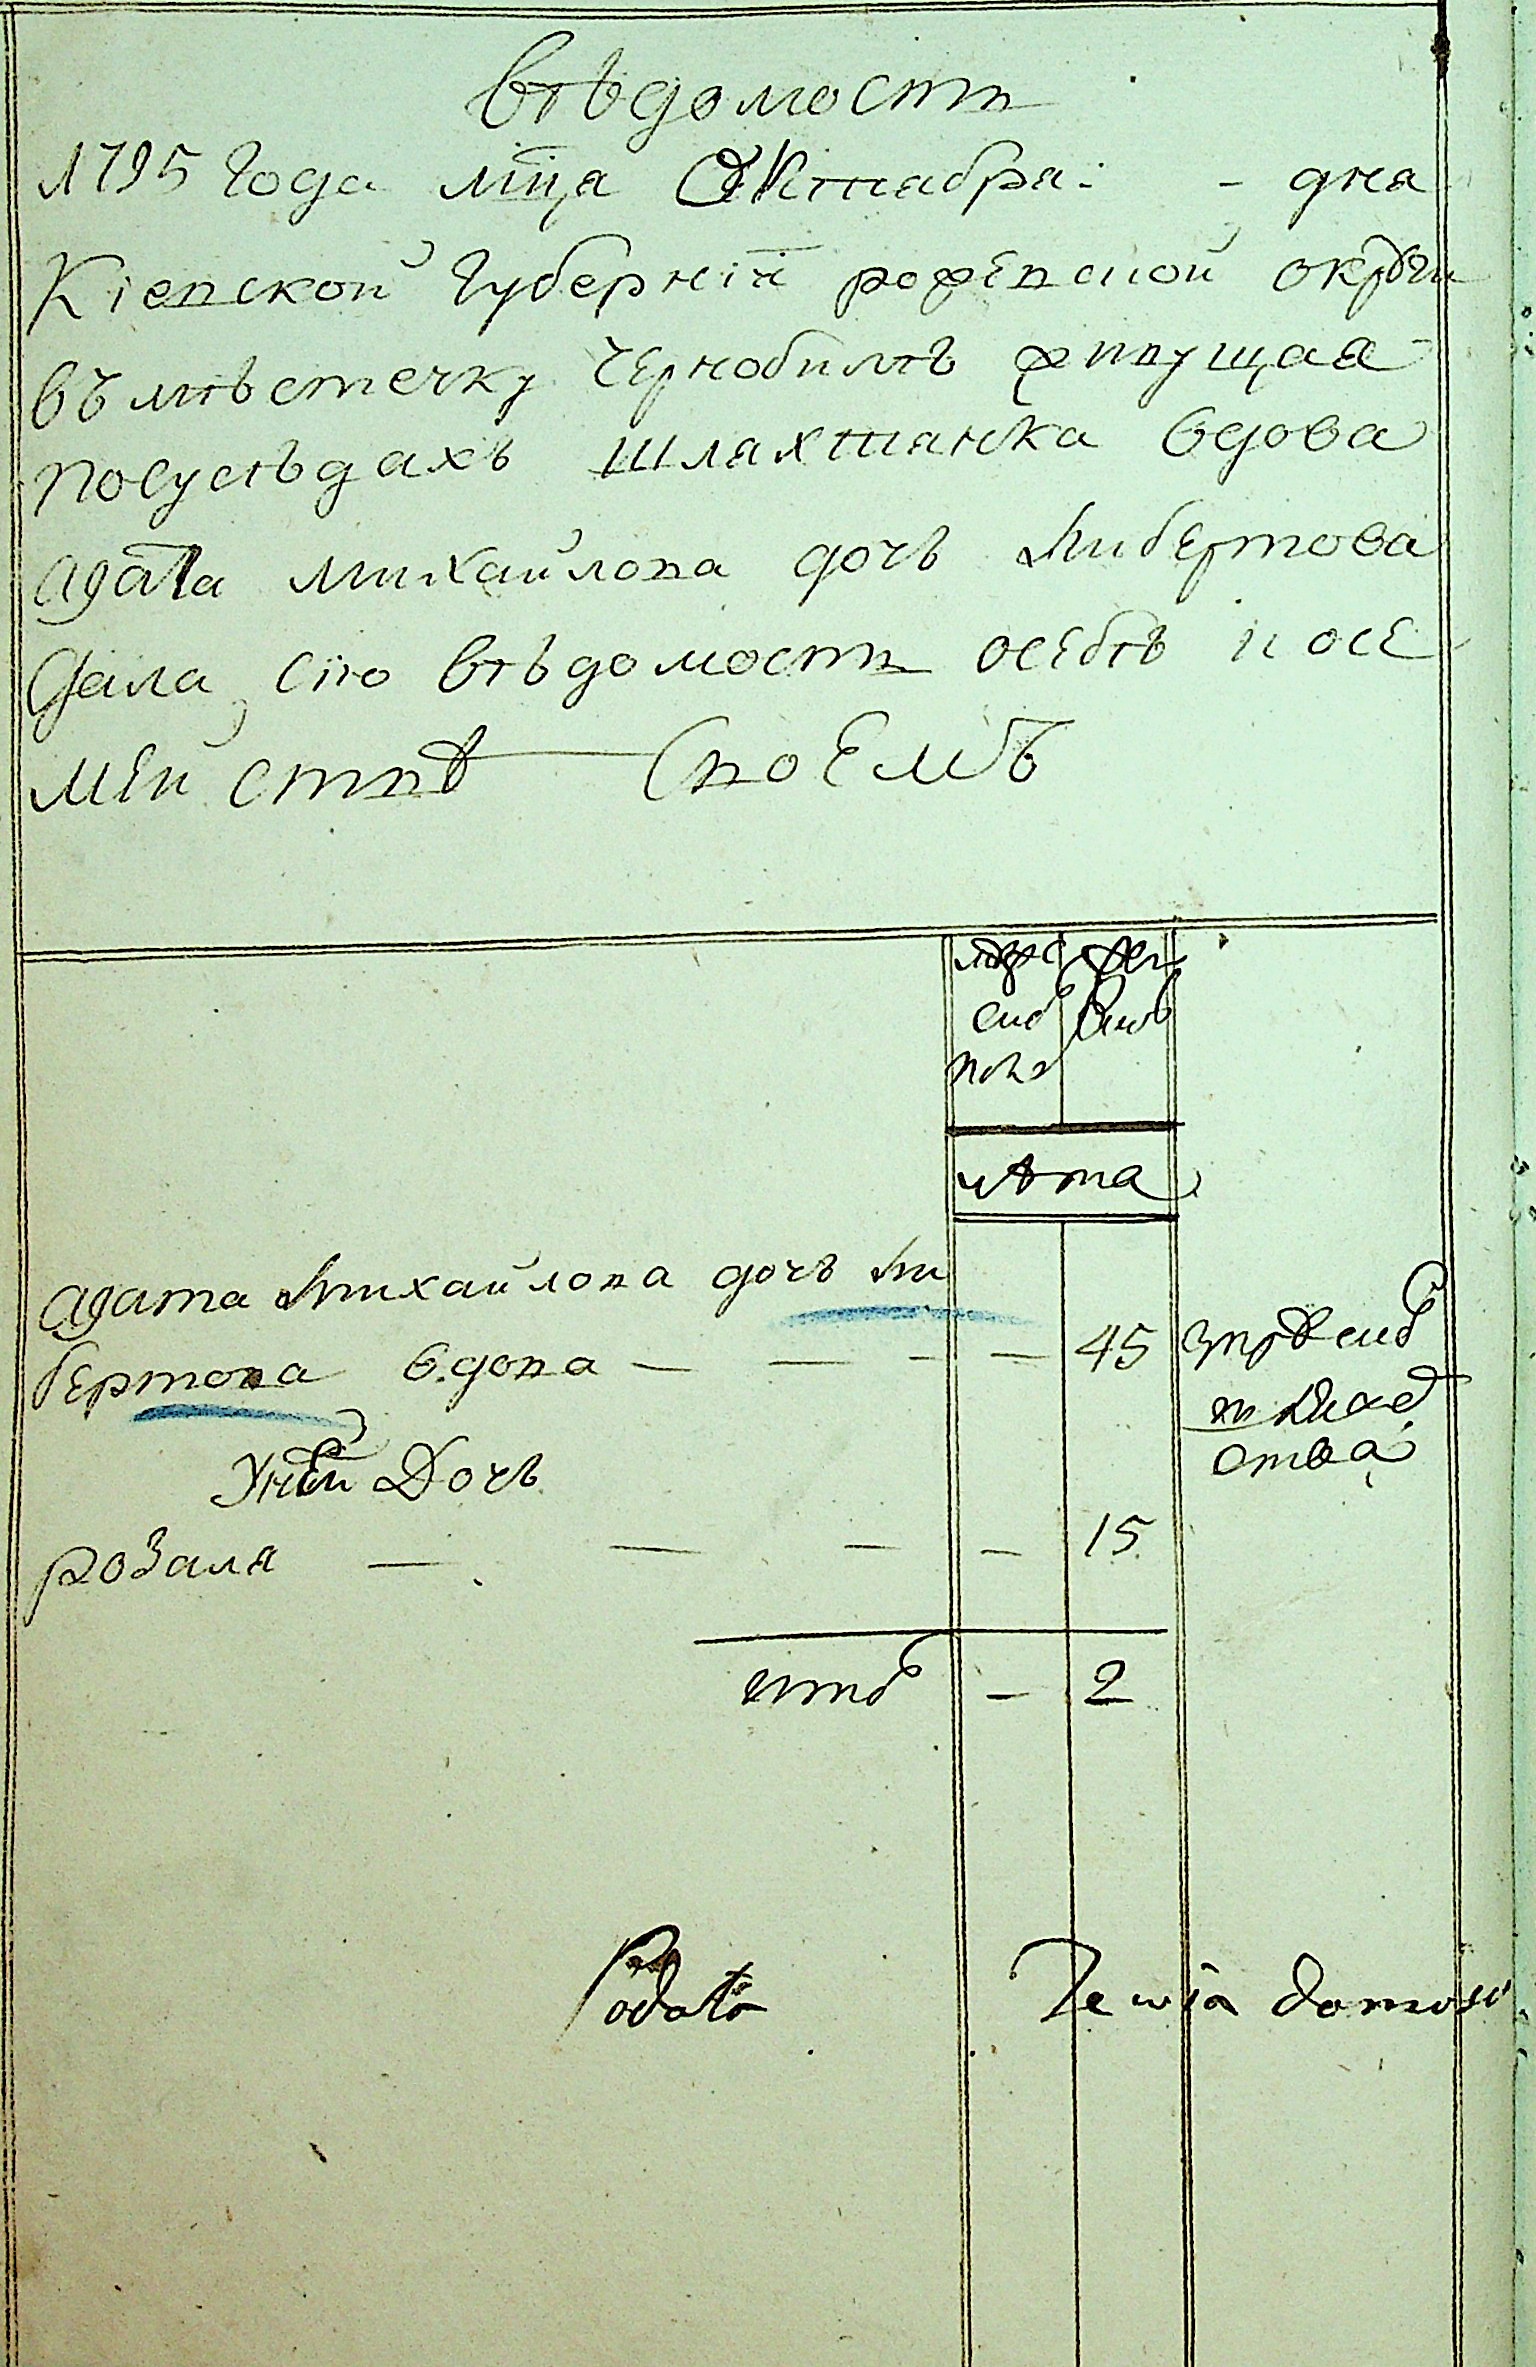 вѣдомость
1795 Года мца Октября: - дня
Кіевской Губерніи Овруцкой округи
въ мѣстечку Чернобилѣ живущая
посусѣдахъ шляхтянка вдова
Агата Михайлова дочь Либертова
Дала сію вѣдомость осебѣ и осе
мействѣ своемъ
муже женс
ска каго
пола
лѣта
Агата Михайлова дочь Ли
бертова вдова — — - — 45
шляхе
ства
Уней Дочь
розаля — — — — 15
итого — 2
Podata Ie wia domość